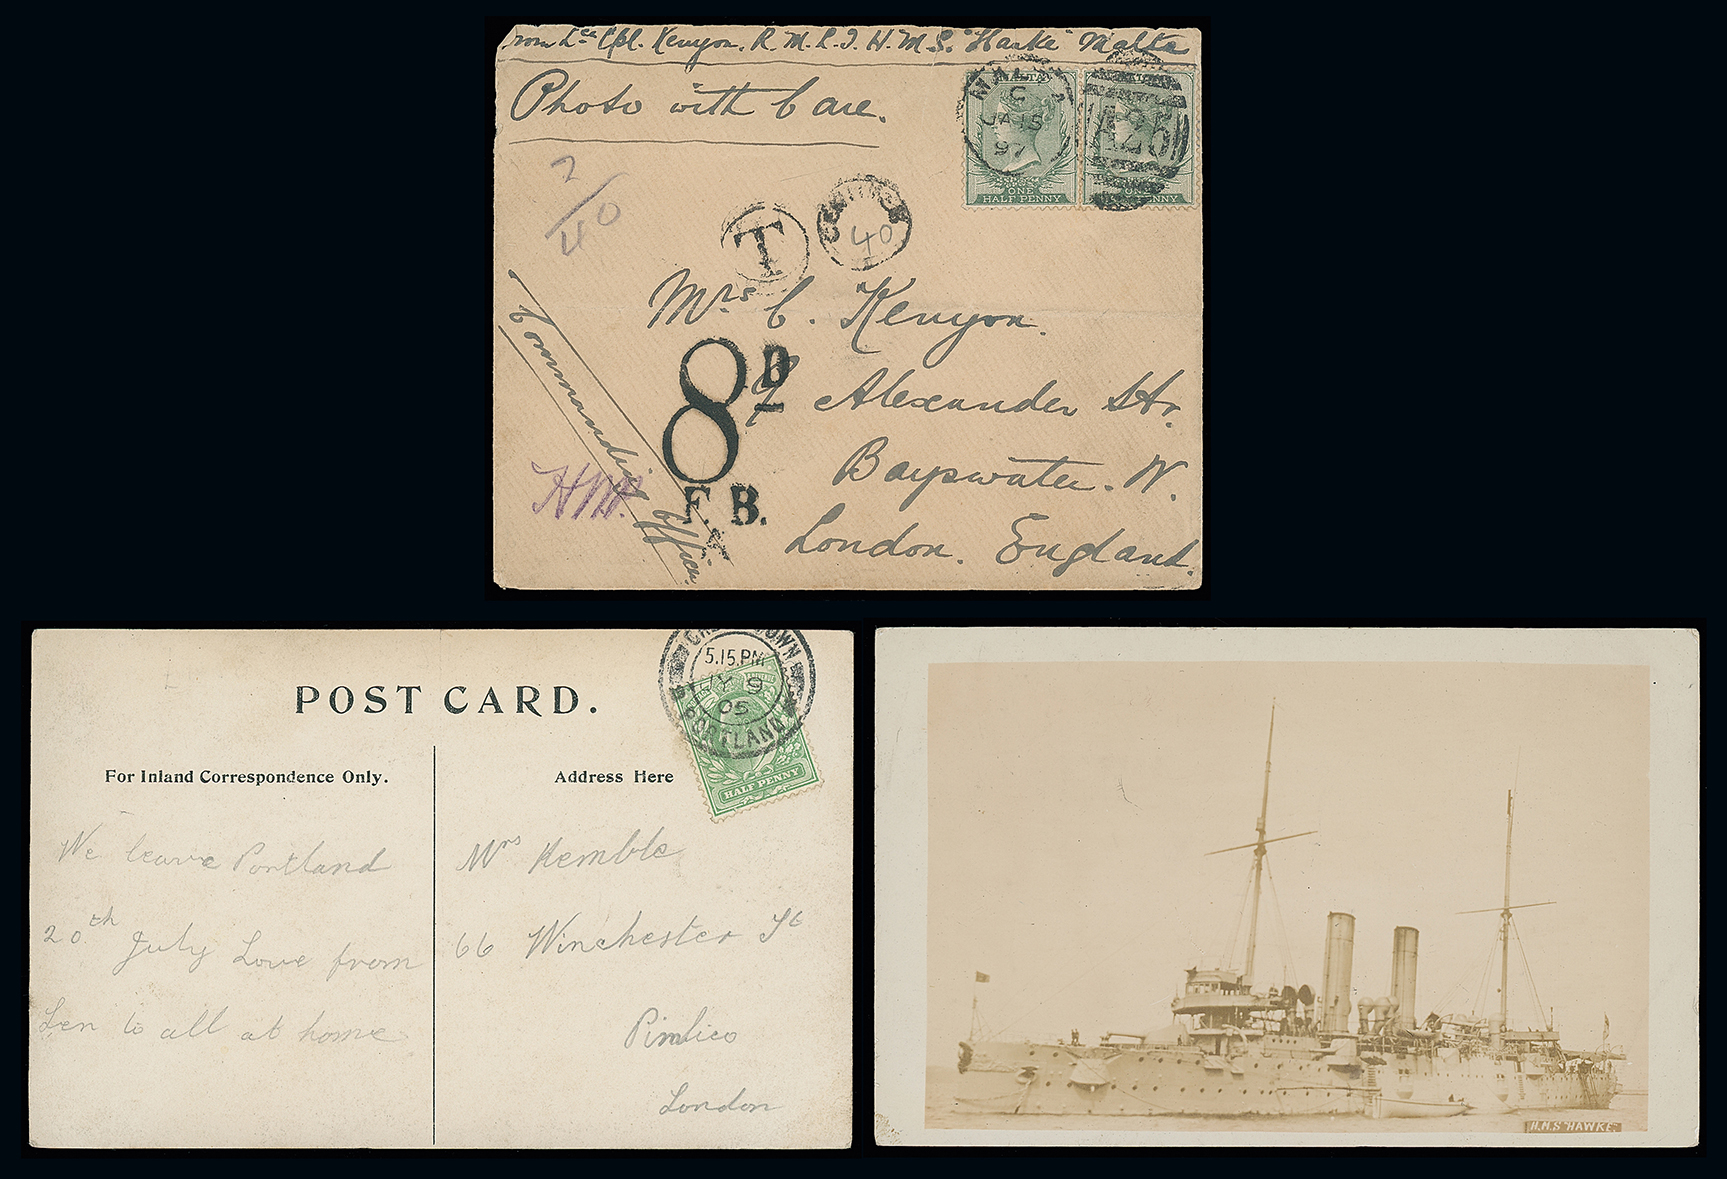 From Lce Cpl. Kenyon. R. M. L. I. H. M. S. "Hawke" Malta
Photo with Care.
MALTA
C
JA 15
97
MALTA
A25
ONE
HALF PENNY
HALF PENNY
2/40
T
CENTIMES
40
Mrs C. Kenyon.
8D
Alexander Str.
Bayswater. W.
F. B.
London. England.
Commanding Officer
POST CARD.
5.15.PM
JY 9
05
PORTLAND
HALF PENNY
For Inland Correspondence Only.
Address Here
We leave Portland
20th July Love from
Len to all at home
Mrs Kemble
66 Winchester St
Pimlico
London
H.M.S "HAWKE"